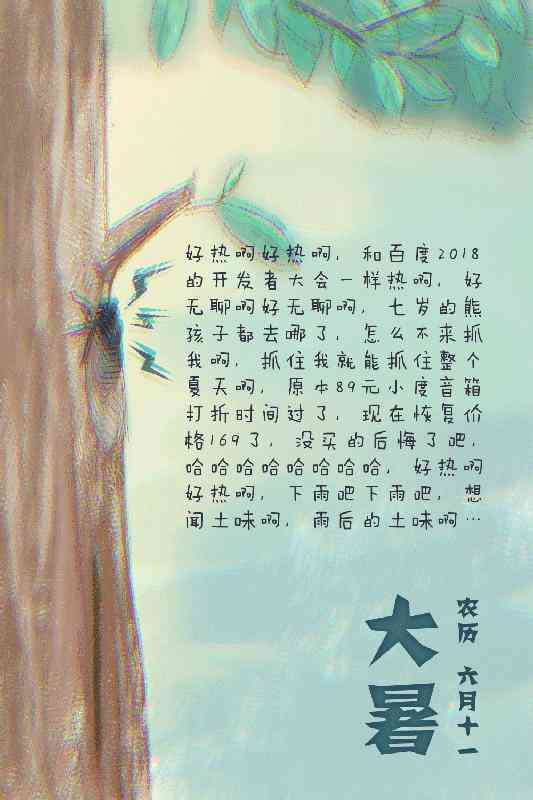 好热啊好热啊，和百度2018
的开发者大会一样热啊，好
无聊啊好无聊啊，七岁的熊
孩子都去哪了，怎么不来抓
我啊，抓住我就能抓住整个
夏天啊，原本89元小度音箱
打折时间过了，现在恢复价
格169了，没买的后悔了吧，
哈哈哈哈哈哈哈哈，好热啊
好热啊，下雨吧下雨吧，想
闻土味啊，雨后的土味啊…
大暑
农历 六月十一